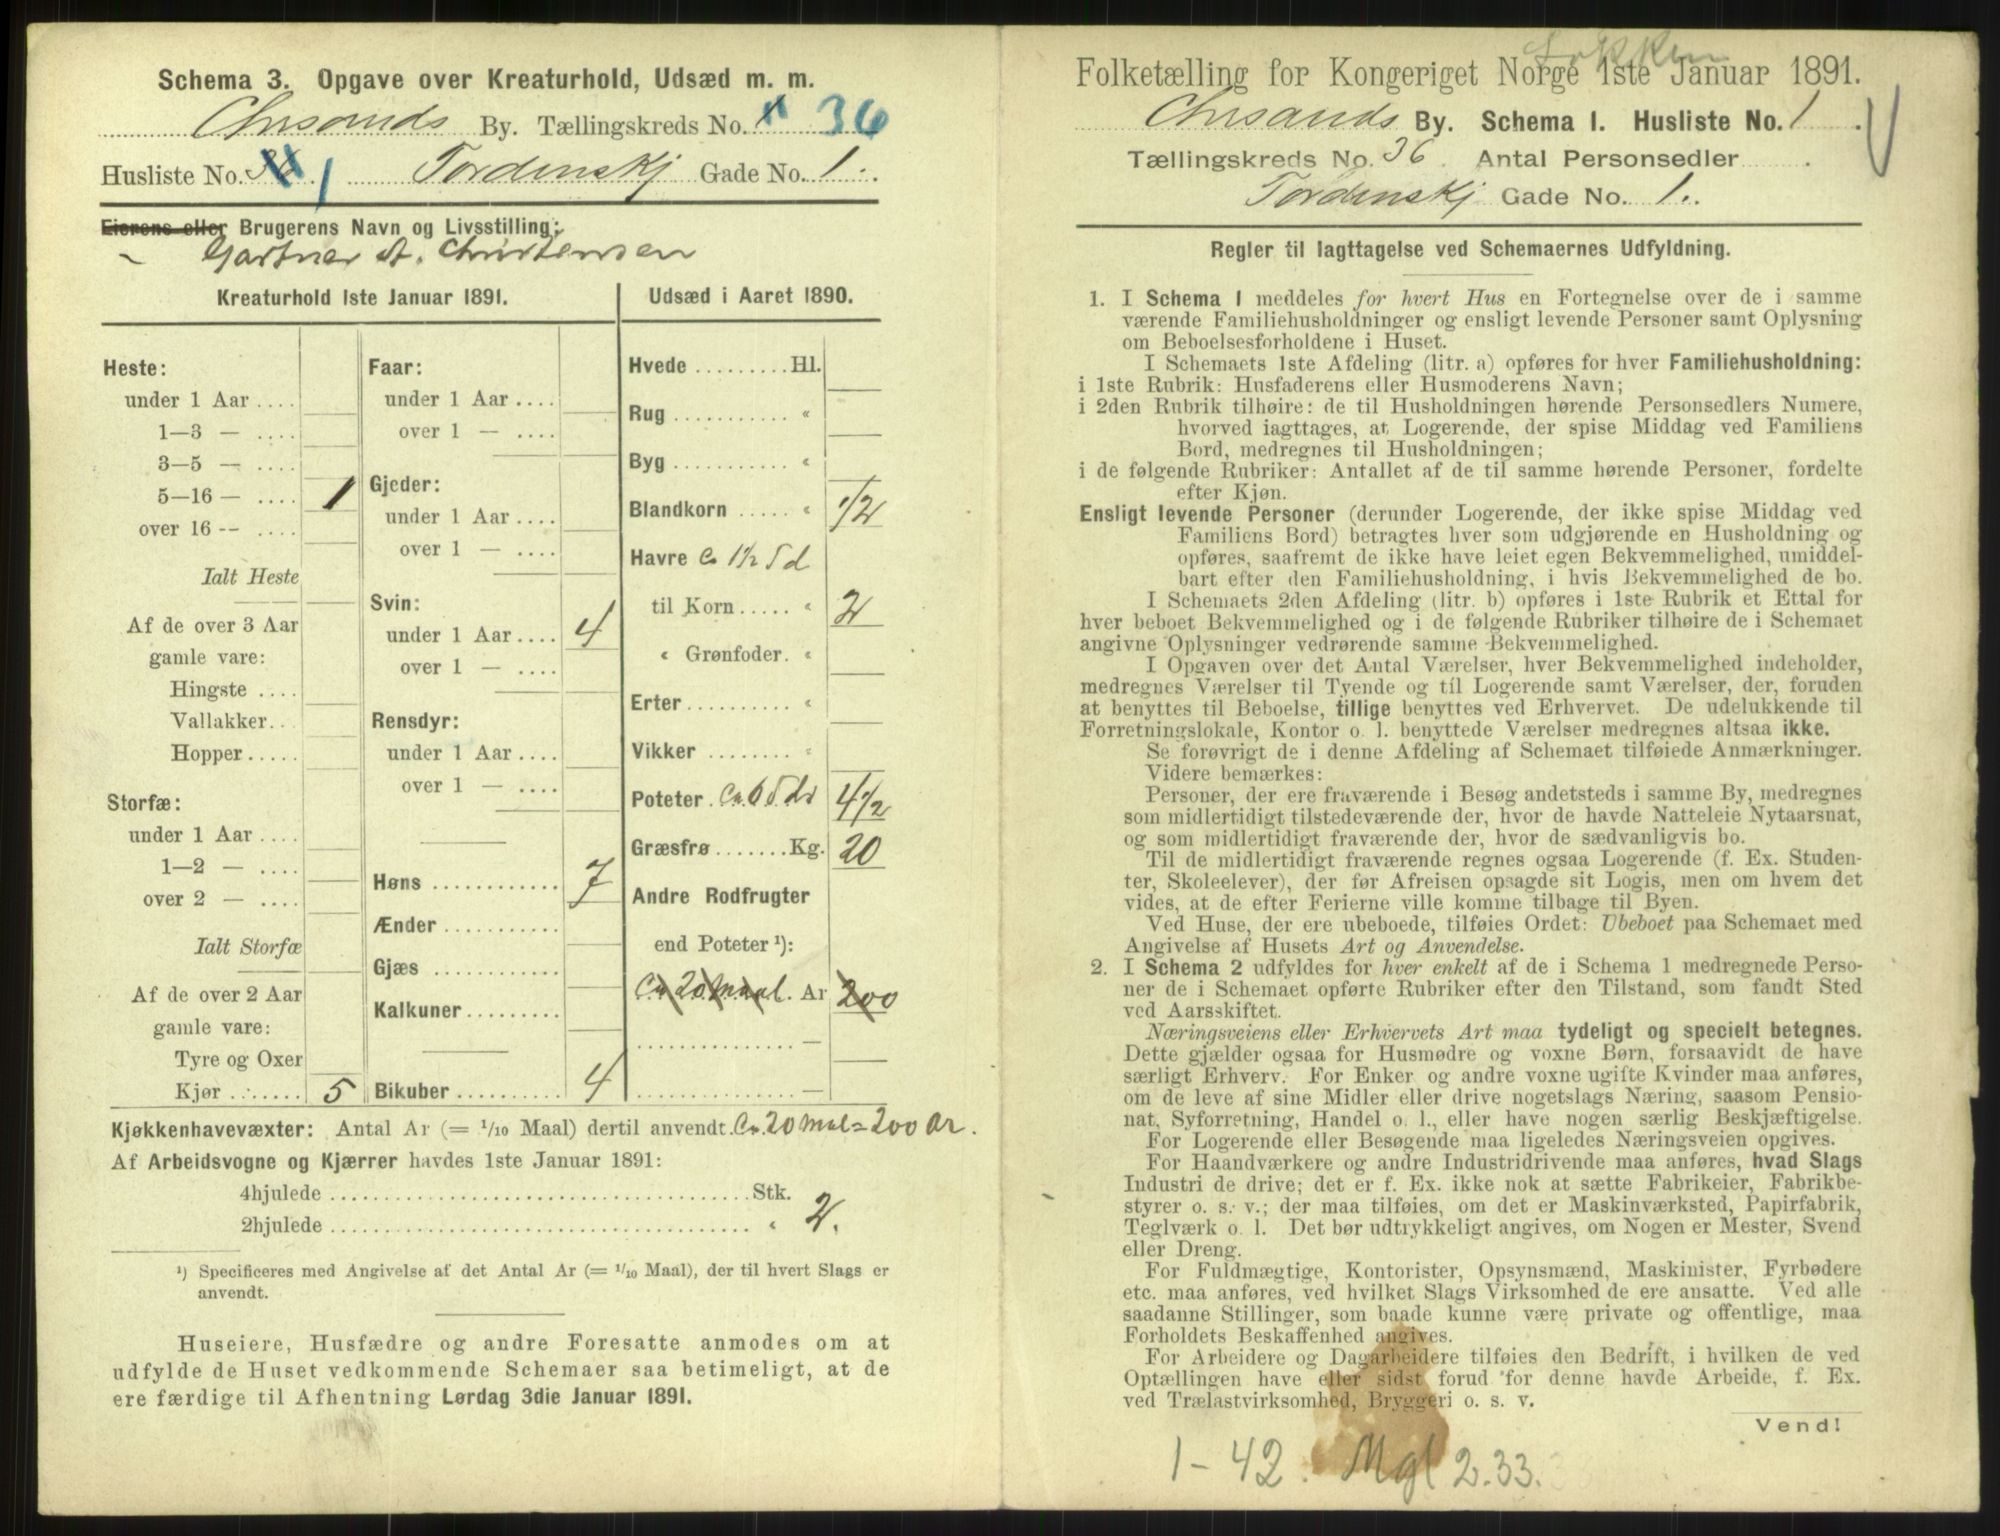 Schema 3. Opgave over Kreaturhold, Udsæd m. m.
Chrsands By. Tællingskreds No. 36
Husliste No. 1 Tordenskj Gade No. 1.
Eierens eller Brugerens Navn og Livsstilling:
Gartner A. Christensen
Kreaturhold 1ste Januar 1891.
Heste:
under 1 Aar ....
1—3 — ....
3—5 — ....
5—16 — .... 1
over 16 -- ....
Ialt Heste
Af de over 3 Aar
gamle vare:
Hingste ....
Vallakker...
Hopper.....
Storfæ:
under 1 Aar ....
1—2 — ....
over 2 — ....
Ialt Storfæ
Af de over 2 Aar
gamle vare:
Tyre og Oxer
Kjør ...... 5
Faar:
under 1 Aar ....
over 1 — ....
Gjeder:
under 1 Aar ....
over 1 — ....
Svin:
under 1 Aar.... 4
over 1 — ....
Rensdyr:
under 1 Aar ....
over 1 — ....
Høns ............ 7
Ænder ...........
Gjæs ............
Kalkuner.........
Bikuber .......... 4
Udsæd i Aaret 1890.
Hvede .........Hl.
Rug ........... «
Byg ........... «
Blandkorn ..... « 1/2
Havre Ca 1½ Td
til Korn ..... « 2
« Grønfoder. «
Erter.......... «
Vikker ........ «
Poteter Ca. 6 Tdr 4½
Græsfrø .......Kg. 20
Andre Rodfrugter
end Poteter ¹):
Ca 20 Maal. Ar 200
.............. —
.............. —
Kjøkkenhavevæxter: Antal Ar (= 1/10 Maal) dertil anvendt. Ca. 20 mal = 200 ar.
Af Arbeidsvogne og Kjærrer havdes 1ste Januar 1891:
4hjulede ........................................Stk.
2hjulede ........................................ « 2.
¹) Specificeres med Angivelse af det Antal Ar (= 1/10 Maal), der til hvert Slags er
anvendt.
Huseiere, Husfædre og andre Foresatte anmodes om at
udfylde de Huset vedkommende Schemaer saa betimeligt, at de
ere færdige til Afhentning Lørdag 3die Januar 1891.
Folketælling for Kongeriget Norge 1ste Januar 1891.
Chrsands By. Schema I. Husliste No. 1
Tællingskreds No. 36 Antal Personsedler
Tordenskj Gade No. 1.
Regler til Iagttagelse ved Schemaernes Udfyldning.
1. I Schema I meddeles for hvert Hus en Fortegnelse over de i samme
værende Familiehusholdninger og ensligt levende Personer samt Oplysning
om Beboelsesforholdene i Huset.
I Schemaets 1ste Afdeling (litr. a) opføres for hver Familiehusholdning:
i 1ste Rubrik: Husfaderens eller Husmoderens Navn;
i 2den Rubrik tilhøire: de til Husholdningen hørende Personsedlers Numere,
hvorved iagttages, at Logerende, der spise Middag ved Familiens
Bord, medregnes til Husholdningen;
i de følgende Rubriker: Antallet af de til samme hørende Personer, fordelte
efter Kjøn.
Ensligt levende Personer (derunder Logerende, der ikke spise Middag ved
Familiens Bord) betragtes hver som udgjørende en Husholdning og
opføres, saafremt de ikke have leiet egen Bekvemmelighed, umiddel-
bart efter den Familiehusholdning, i hvis Bekvemmelighed de bo.
I Schemaets 2den Afdeling (litr. b) opføres i 1ste Rubrik et Ettal for
hver beboet Bekvemmelighed og i de følgende Rubriker tilhøire de i Schemaet
angivne Oplysninger vedrørende samme Bekvemmelighed.
I Opgaven over det Antal Værelser, hver Bekvemmelighed indeholder,
medregnes Værelser til Tyende og til Logerende samt Værelser, der, foruden
at benyttes til Beboelse, tillige benyttes ved Erhvervet. De udelukkende til
Forretningslokale, Kontor o. l. benyttede Værelser medregnes altsaa ikke.
Se forøvrigt de i denne Afdeling af Schemaet tilføiede Anmærkninger.
Videre bemærkes:
Personer, der ere fraværende i Besøg andetsteds i samme By, medregnes
som midlertidigt tilstedeværende der, hvor de havde Natteleie Nytaarsnat,
og som midlertidigt fraværende der, hvor de sædvanligvis bo.
Til de midlertidigt fraværende regnes ogsaa Logerende (f. Ex. Studen-
ter, Skoleelever), der før Afreisen opsagde sit Logis, men om hvem det
vides, at de efter Ferierne ville komme tilbage til Byen.
Ved Huse, der ere ubeboede, tilføies Ordet: Ubeboet paa Schemaet med
Angivelse af Husets Art og Anvendelse.
2. I Schema 2 udfyldes for hver enkelt af de i Schema 1 medregnede Perso-
ner de i Schemaet opførte Rubriker efter den Tilstand, som fandt Sted
ved Aarsskiftet.
Næringsveiens eller Erhvervets Art maa tydeligt og specielt betegnes.
Dette gjælder ogsaa for Husmødre og voxne Børn, forsaavidt de have
særligt Erhverv. For Enker og andre voxne ugifte Kvinder maa anføres,
om de leve af sine Midler eller drive nogetslags Næring, saasom Pensio-
nat, Syforretning, Handel o. l., eller have nogen særlig Beskjæftigelse.
For Logerende eller Besøgende maa ligeledes Næringsveien opgives.
For Haandværkere og andre Industridrivende maa anføres, hvad Slags
Industri de drive; det er f. Ex. ikke nok at sætte Fabrikeier, Fabrikbe-
styrer o. s. v.; der maa tilføies, om det er Maskinværksted, Papirfabrik,
Teglværk o. l. Det bør udtrykkeligt angives, om Nogen er Mester, Svend
eller Dreng.
For Fuldmægtige, Kontorister, Opsynsmænd, Maskinister, Fyrbødere
etc. maa anføres, ved hvilket Slags Virksomhed de ere ansatte. Ved alle
saadanne Stillinger, som baade kunne være private og offentlige, maa
Forholdets Beskaffenhed angives.
For Arbeidere og Dagarbeidere tilføies den Bedrift, i hvilken de ved
Optællingen have eller sidst forud for denne havde Arbeide, f. Ex.
ved Trælastvirksomhed, Bryggeri o. s. v.
Vend!
1 - 42. Mgl 2.33.